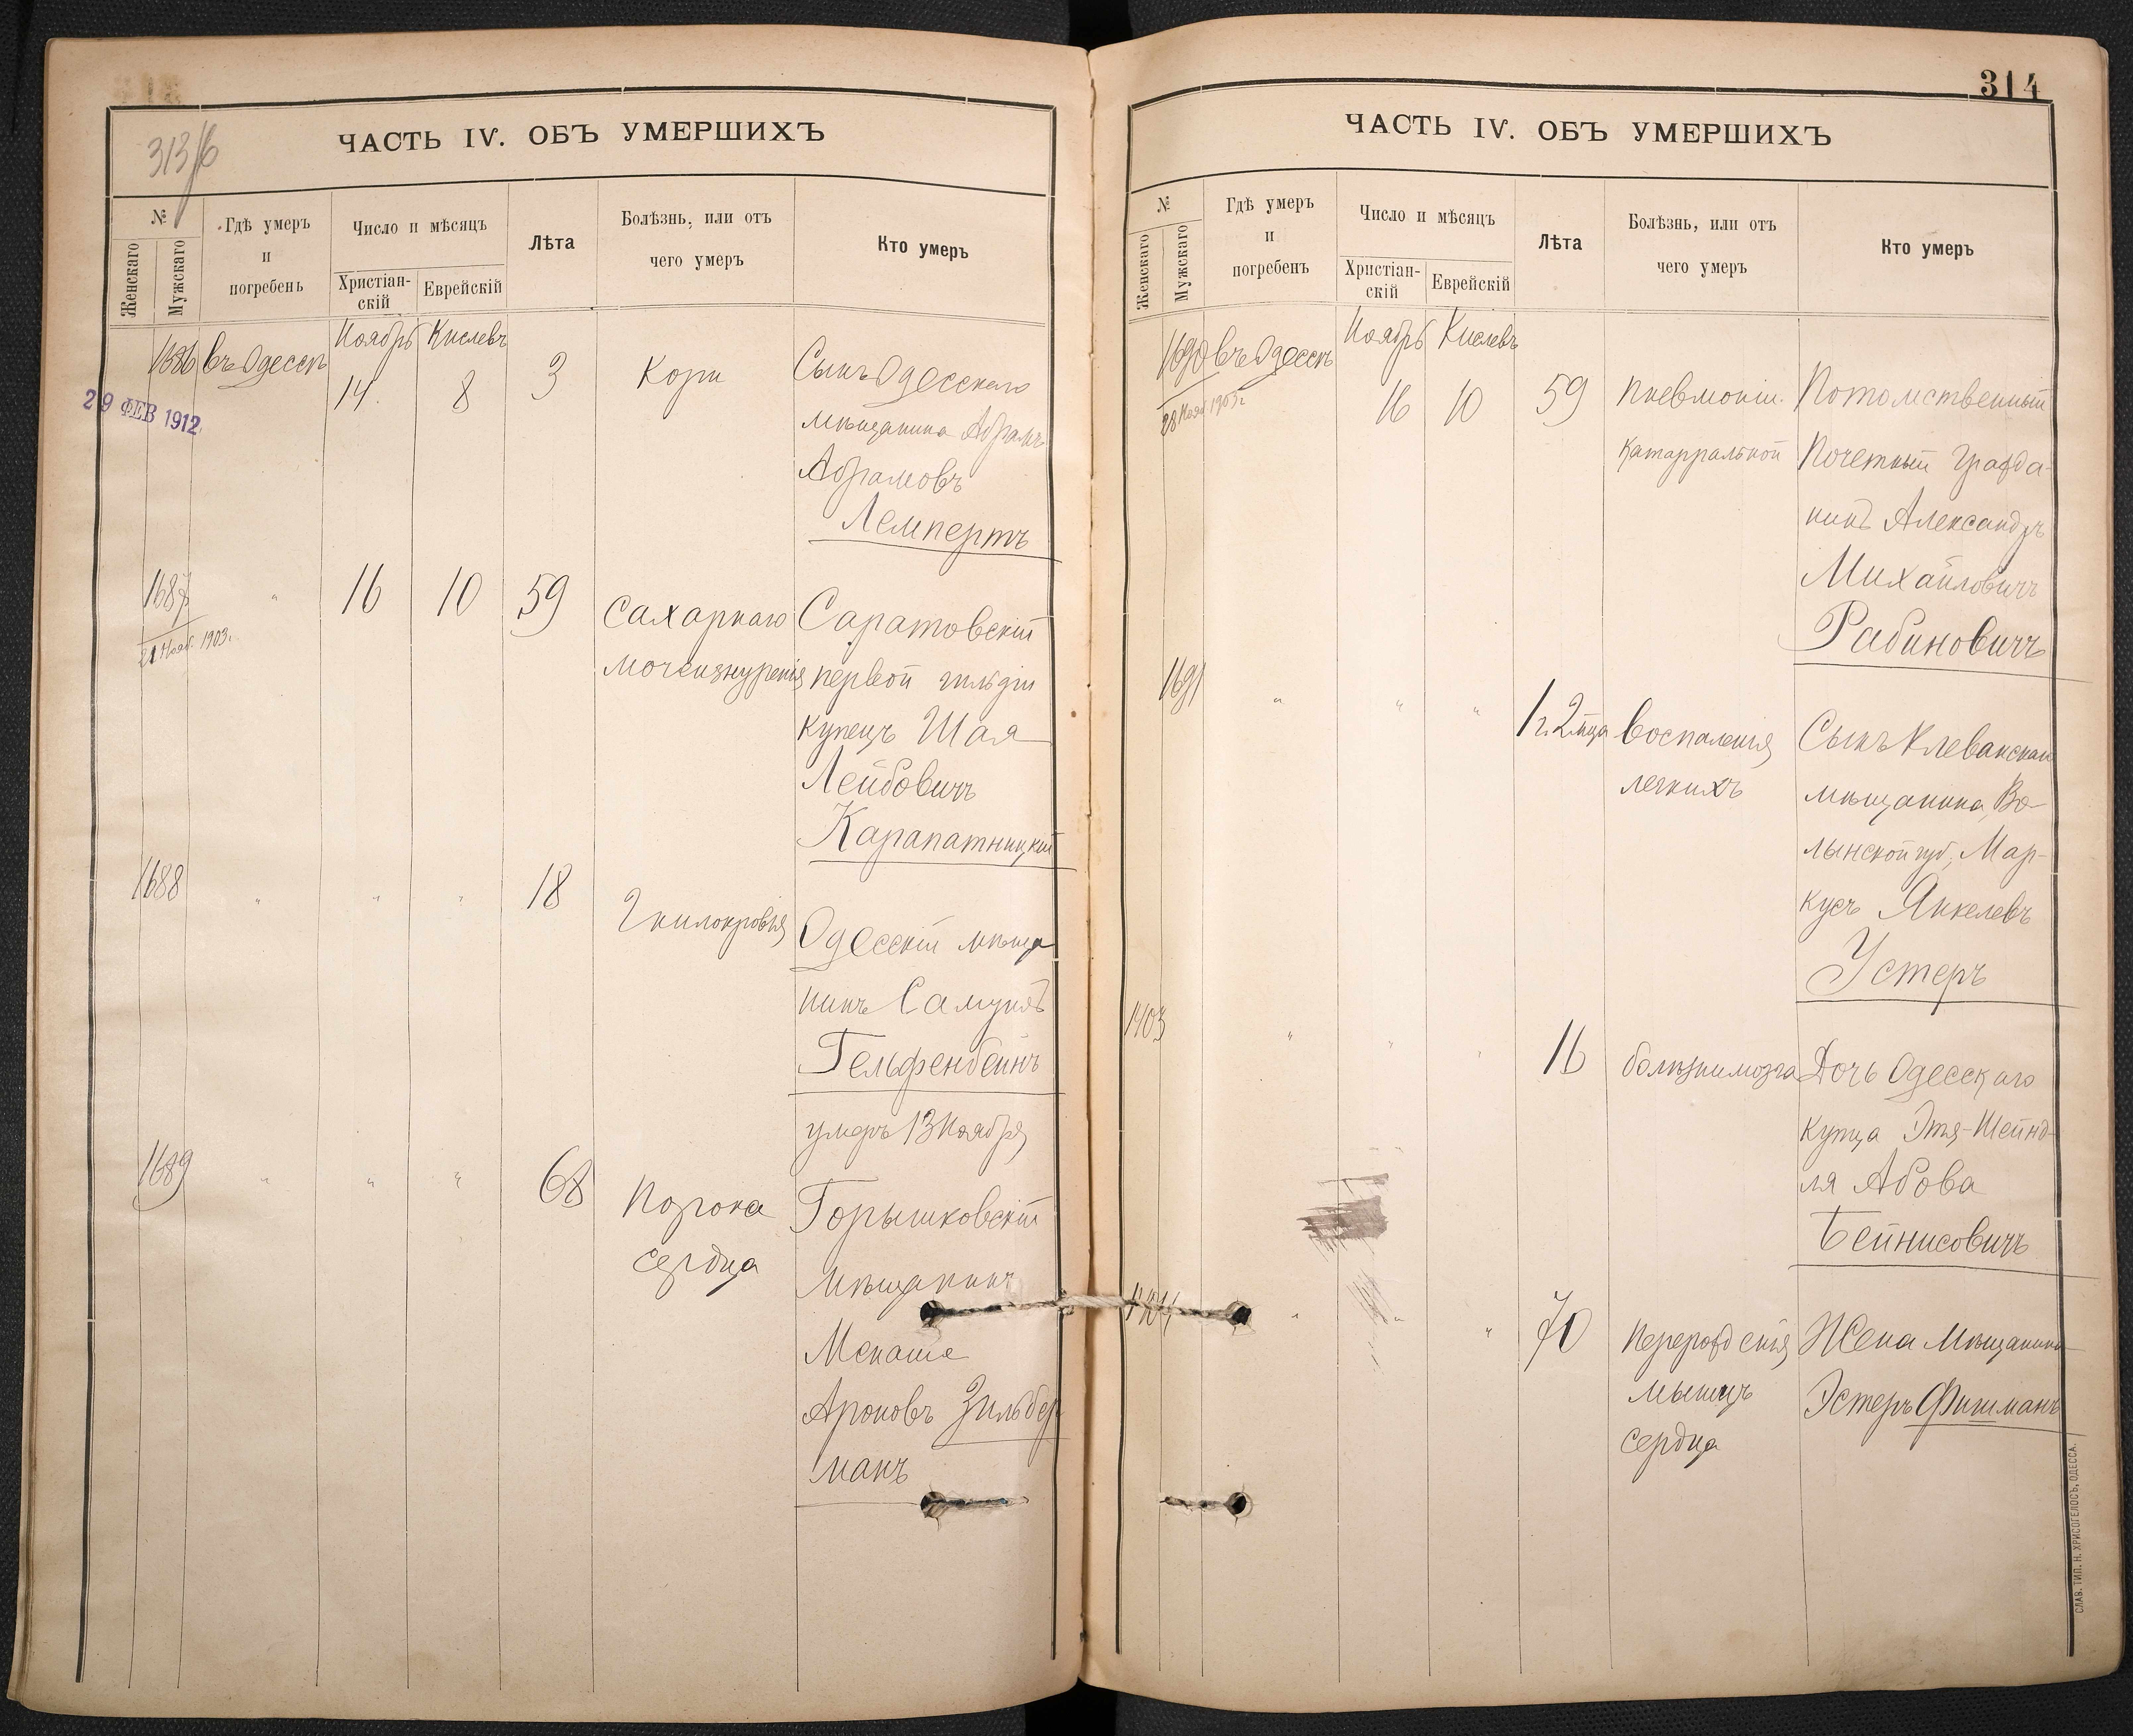 313/б
ЧАСТЬ IV. ОБЪ УМЕРШИХЪ
№
Женскаго
Мужскаго
Гдѣ умеръ
и
погребенъ
Число и мѣсяцъ
Христіан-
скій
Еврейскій
Лѣта
Болѣзнь, или отъ
чего умеръ
Кто умеръ
1686 въ Одессѣ Ноябрь 14. Кислевъ 8 3 Кори Сынъ Одесскаго
29 ФЕВ 1912
мѣщанина Абрамъ
Абрамовъ
Лемпертъ
1687 " 16 10 59 Сахарнаго Саратовскій
21 Нояб. 1903г.
мочеизнуренія первой гильдіи
купецъ Шая
Лейбовичъ
Карапатницкій
1688 " " " 18 Гнилокровія Одесскій мѣща
нинъ Самуилъ
Гельфенбейнъ
умеръ 13 Ноября
1689 " " " 68 Порока Горышковскій
сердца мѣщанинъ
Менаше
Ароновъ Зильбер
манъ
314
ЧАСТЬ IV. ОБЪ УМЕРШИХЪ
№
Женскаго
Мужскаго
Гдѣ умеръ
и
погребенъ
Число и мѣсяцъ
Христіан-
скій
Еврейскій
Лѣта
Болѣзнь, или отъ
чего умеръ
Кто умеръ
1690 въ Одессѣ Ноябрь 16 Кислевъ 10 59 Пневмоніи Потомственный
28 Нояб 1903г
Катарральной Почетный Гражда-
нинъ Александръ
Михайловичъ
Рабиновичъ
1691 " " " 1 г. 2 мца Воспаленія Сынъ Клеванскаго
легкихъ мѣщанина, Во-
лынской губ., Мар-
кусъ Янкелевъ
Устеръ
1403 " " " 16 болѣзни мозга Дочь Одесскаго
купца Этя-Шейнд-
ля Абова
Бейнисовичъ
1404 " " " 70 Перерожденія Жена Мѣщанина
мышцъ Эстеръ Фишманъ
сердца
СЛАВ. ТИП. Н. ХРИСОГЕЛОСЪ, ОДЕССА.